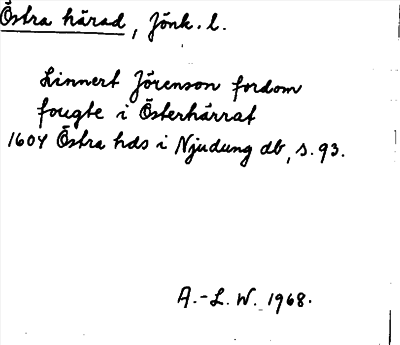 Östra härad, Jönk. l.
Linnert Jörenson fordom
fougte i Österhärrat
1604 Östra hds i Njudung db, s. 93.
A.-L. W. 1968.